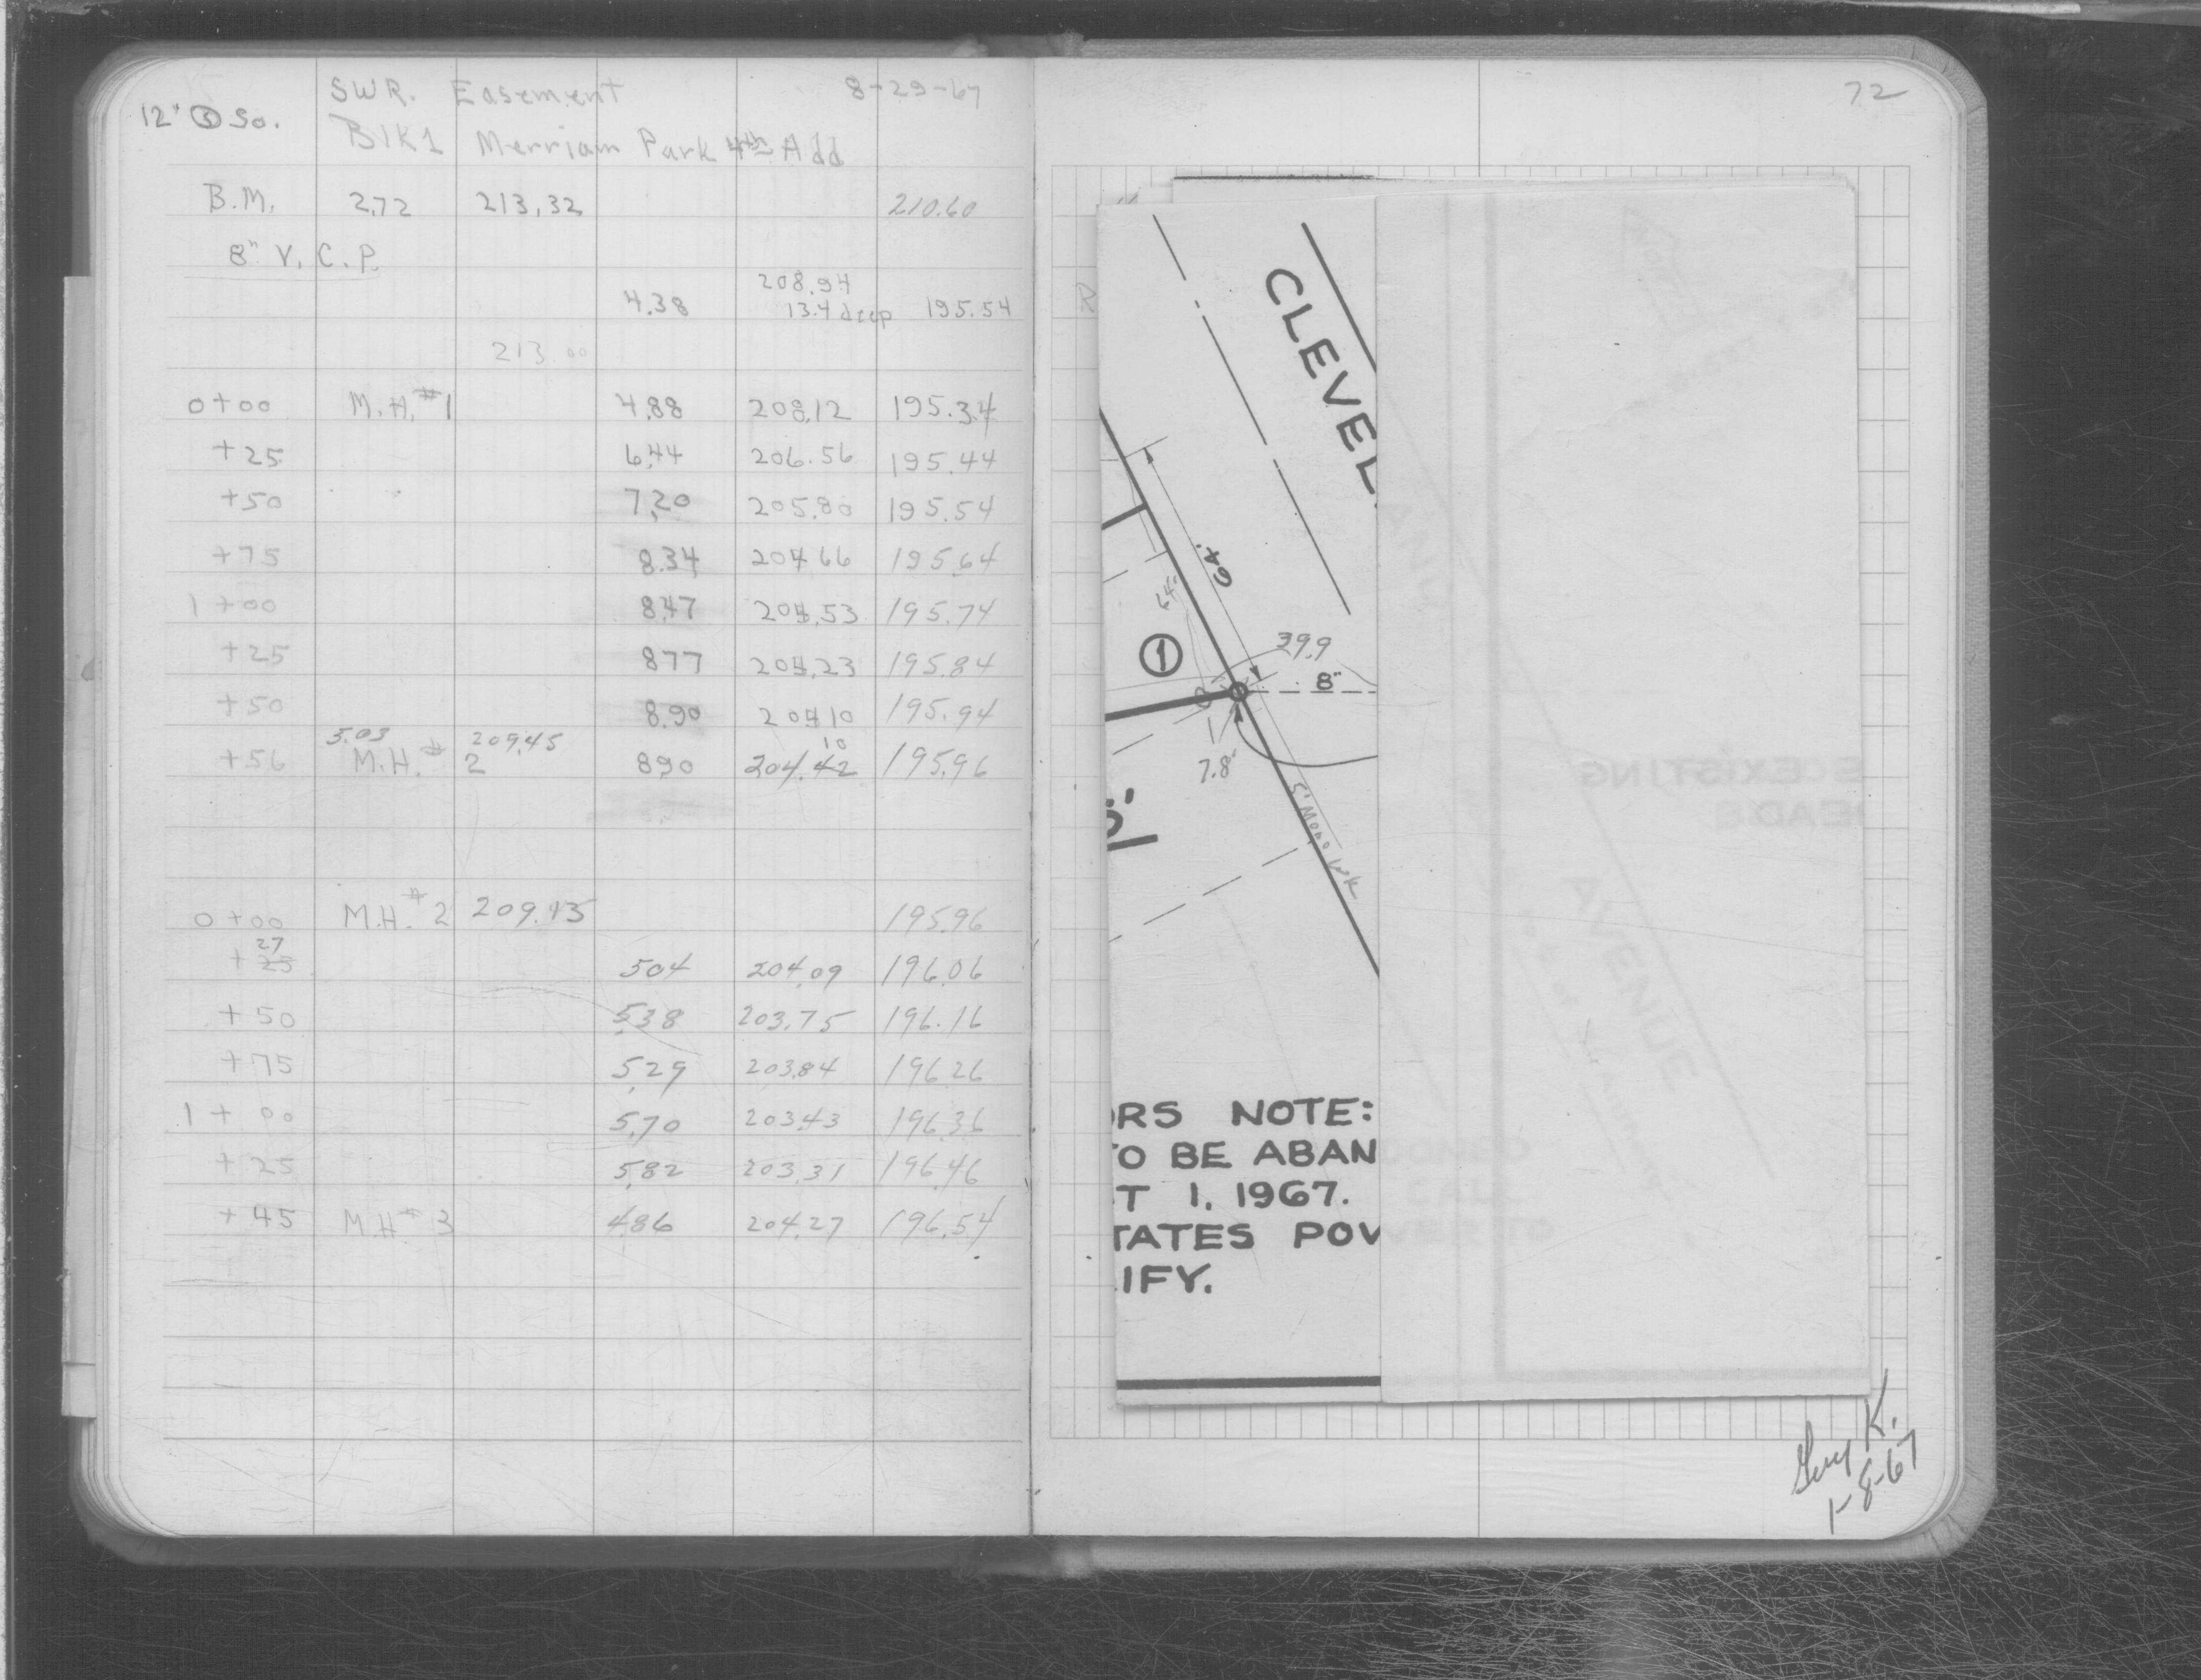 SWR. Easement 8-29-67
12" ③ So.
Blk 1 Merriam Park 4th Add
B.M. 2.72 213.32 210.60
8" V.C.P.
208.94
4.38 13.4 deep 195.54
213.00
0+00 M.H. #1 4.88 208.12 195.34
+25 6.44 206.56 195.44
+50 7.20 205.80 195.54
+75 8.34 204.66 195.64
1+00 8.47 204.53 195.74
+25 8.77 204.23 195.84
+50 8.90 204.10 195.94
5.03 209.45 10
+56 M.H. #2 8.90 204.42 195.96
0+00 M.H. #2 209.13 195.96
27
+25 5.04 204.09 196.06
+50 5.38 203.75 196.16
+75 5.29 203.84 196.26
1+00 5.70 203.43 196.36
+25 5.82 203.31 196.46
+45 M.H. #3 4.86 204.27 196.54
72
R
CLEVEL
64.
64.
① 39.9
8"
7.8
5' Mono Wk
S.
ORS NOTE:
TO BE ABAN
T 1, 1967.
TATES POW
IFY.
EXISTING
HEADS
AVENUE
K.
1-8-67